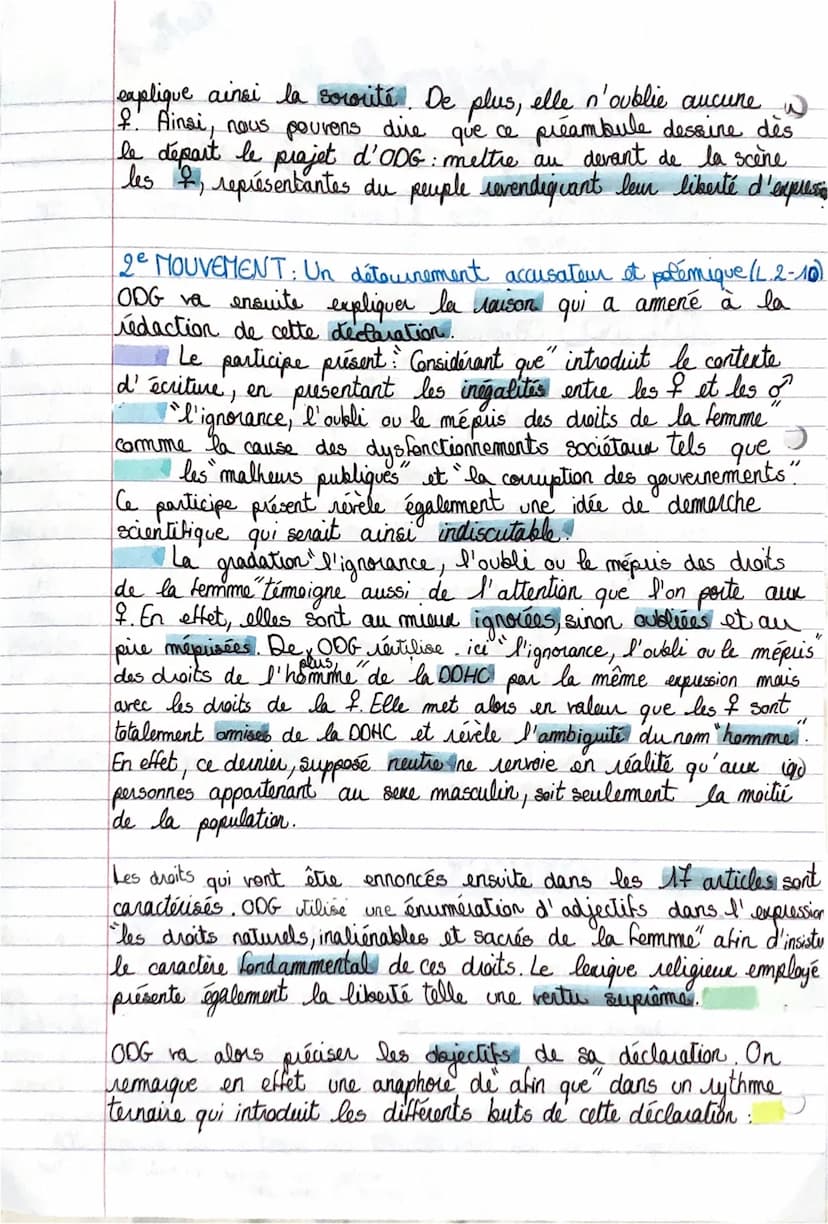 explique ainsi la sororité. De plus, elle n'oublie aucune
♀. Ainsi, nous pouvons dire que ce préambule dessine dès
le départ le projet d'ODG : mettre au devant de la scène
les ♀, représentantes du peuple revendiquant leur liberté d'express
2e MOUVEMENT : Un détournement accusateur et polémique (L.2-10)
ODG va ensuite expliquer la raison qui a amené à la
rédaction de cette déclaration.
Le participe présent : "Considérant que" introduit le contexte
d'écriture, en présentant les inégalités entre les ♀ et les ♂
"l'ignorance, l'oubli ou le mépris des droits de la femme"
comme la cause des dysfonctionnements sociétaux tels que
les "malheurs publiques" et "la corruption des gouvernements".
Ce participe présent révèle également une idée de démarche
scientifique qui serait ainsi indiscutable.
La gradation "l'ignorance, l'oubli ou le mépris des droits
de la femme" témoigne aussi de l'attention que l'on porte aux
♀. En effet, elles sont au mieux ignorées, sinon oubliées et au
pire méprisées. De plus, ODG réutilise ici "l'ignorance, l'oubli ou le mépris
des droits de l'homme" de la DDHC par la même expression mais
avec les droits de la ♀. Elle met alors en valeur que les ♀ sont
totalement omises de la DDHC et révèle l'ambiguité du nom "homme".
En effet, ce dernier, supposé neutre ne renvoie en réalité qu'aux
personnes appartenant au sexe masculin, soit seulement la moitié
de la population.
Les droits qui vont être ennoncés ensuite dans les 17 articles sont
caractérisés. ODG utilise une énumération d'adjectifs dans l'expression
"les droits naturels, inaliénables et sacrés de la femme" afin d'insister
le caractère fondammental de ces droits. Le lexique religieux employé
présente également la liberté telle une vertu suprême.
ODG va alors préciser les objectifs de sa déclaration. On
remarque en effet une anaphore de "afin que" dans un rythme
ternaire qui introduit les différents buts de cette déclaration :